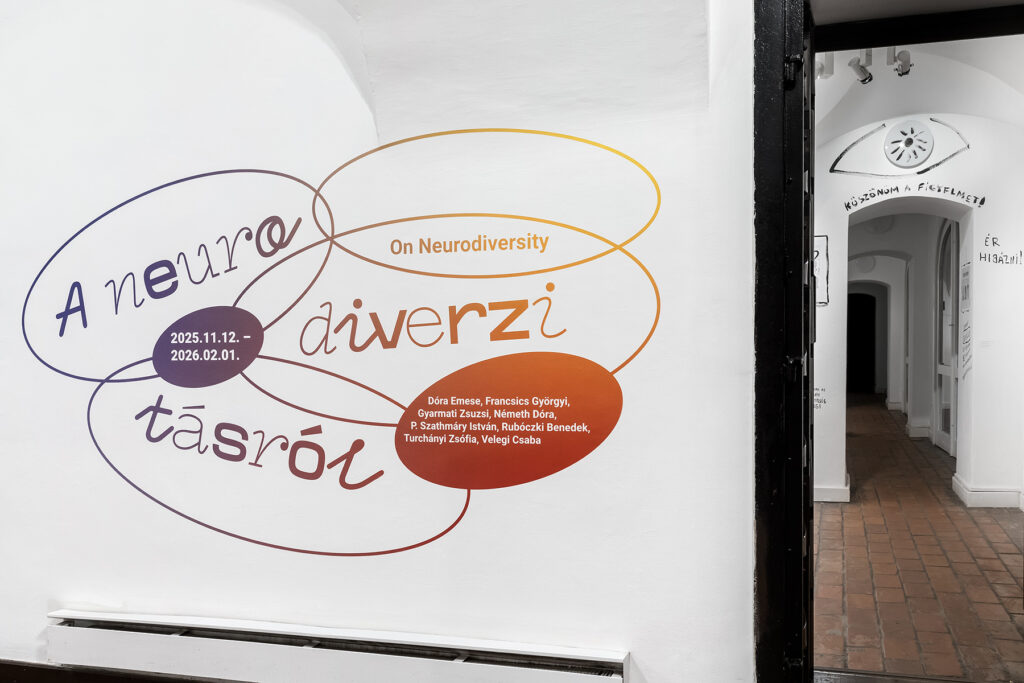 A neuro
On Neurodiversity
diverzi
2025.11.12. –
2026.02.01.
tásról
Dóra Emese, Francsics Györgyi,
Gyarmati Zsuzsi, Németh Dóra,
P. Szathmáry István, Rubóczki Benedek,
Turchányi Zsófia, Velegi Csaba
KÖSZÖNÖM A FIGYELMET!
ÉR
HIBÁZNI!